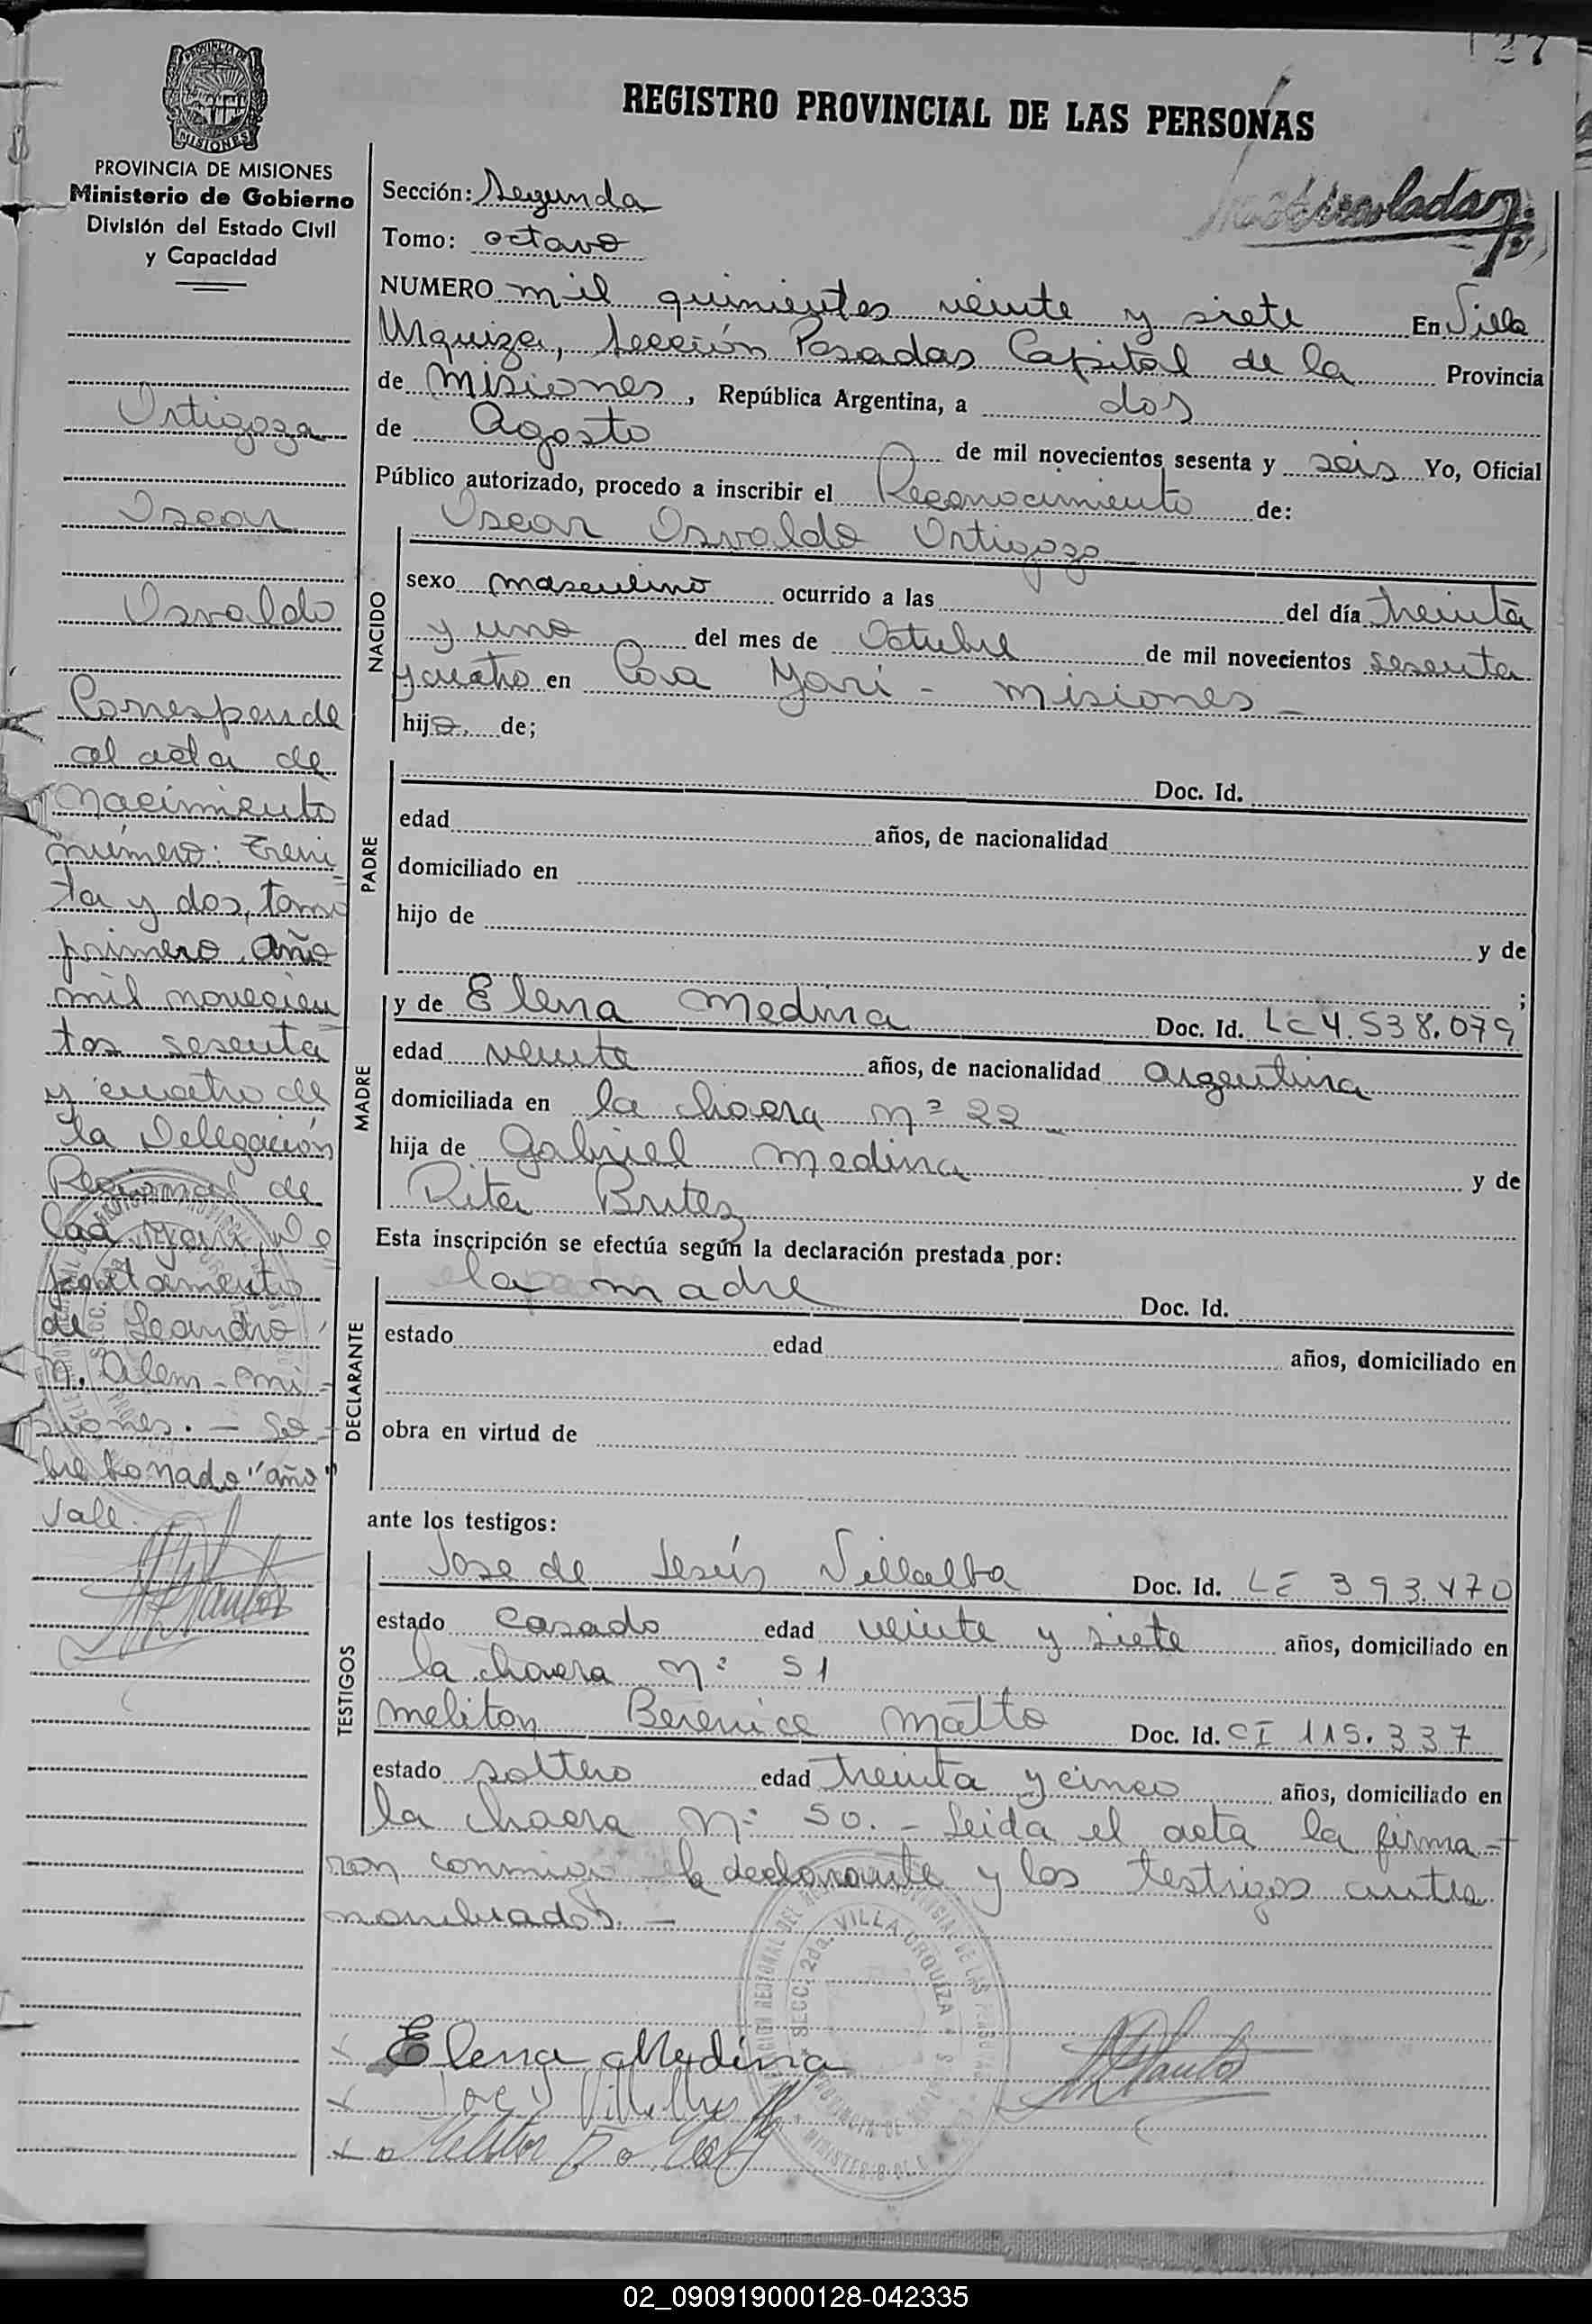 127
PROVINCIA DE MISIONES
MISIONES
REGISTRO PROVINCIAL DE LAS PERSONAS
PROVINCIA DE MISIONES
Ministerio de Gobierno
División del Estado Civil
y Capacidad
Sección: Segunda
Tomo: octavo
NUMERO mil quinientos veinte y siete En Villa
Urquiza, Sección Posadas Capital de la Provincia
de misiones, República Argentina, a dos
de Agosto de mil novecientos sesenta y seis Yo, Oficial
Público autorizado, procedo a inscribir el Reconocimiento de:
Oscar Osvaldo Ortigoza
NACIDO
sexo masculino ocurrido a las del día treinta
y uno del mes de Octubre de mil novecientos sesenta
y cuatro en Caa Yari - misiones -
hijo. de;
PADRE
Doc. Id.
edad años, de nacionalidad
domiciliado en
hijo de y de
;
MADRE
y de Elena Medina Doc. Id. LC 4.538.079
edad veinte años, de nacionalidad argentina
domiciliada en la chacra nº 22 -
hija de Gabriel medina y de
Rita Britez
Esta inscripción se efectúa según la declaración prestada por:
DECLARANTE
la madre Doc. Id.
estado edad años, domiciliado en
obra en virtud de
ante los testigos:
TESTIGOS
Jose de Jesús Villalba Doc. Id. LE 393.470
estado casado edad veinte y siete años, domiciliado en
la chacra nº 51
meliton Berenice matto Doc. Id. CI 115.337
estado soltero edad treinta y cinco años, domiciliado en
la chacra Nº 50. - Leida el acta la firma-
ron conmigo la declarante y los testigos antes
nombrados. -
Elena Medina
SECC. 2da. VILLA URQUIZA
Ortigoza
Oscar
Osvaldo
Corresponde
al acta de
Nacimiento
número: trein
ta y dos, tomo
primero, año
mil novecien
tos sesenta
y cuatro de
la Delegación
Regional de
Caa Yari, De
partamento
de Leandro
N. Alem - mi-
siones. - So-
bre borrado "año"
Vale.
02_090919000128-042335